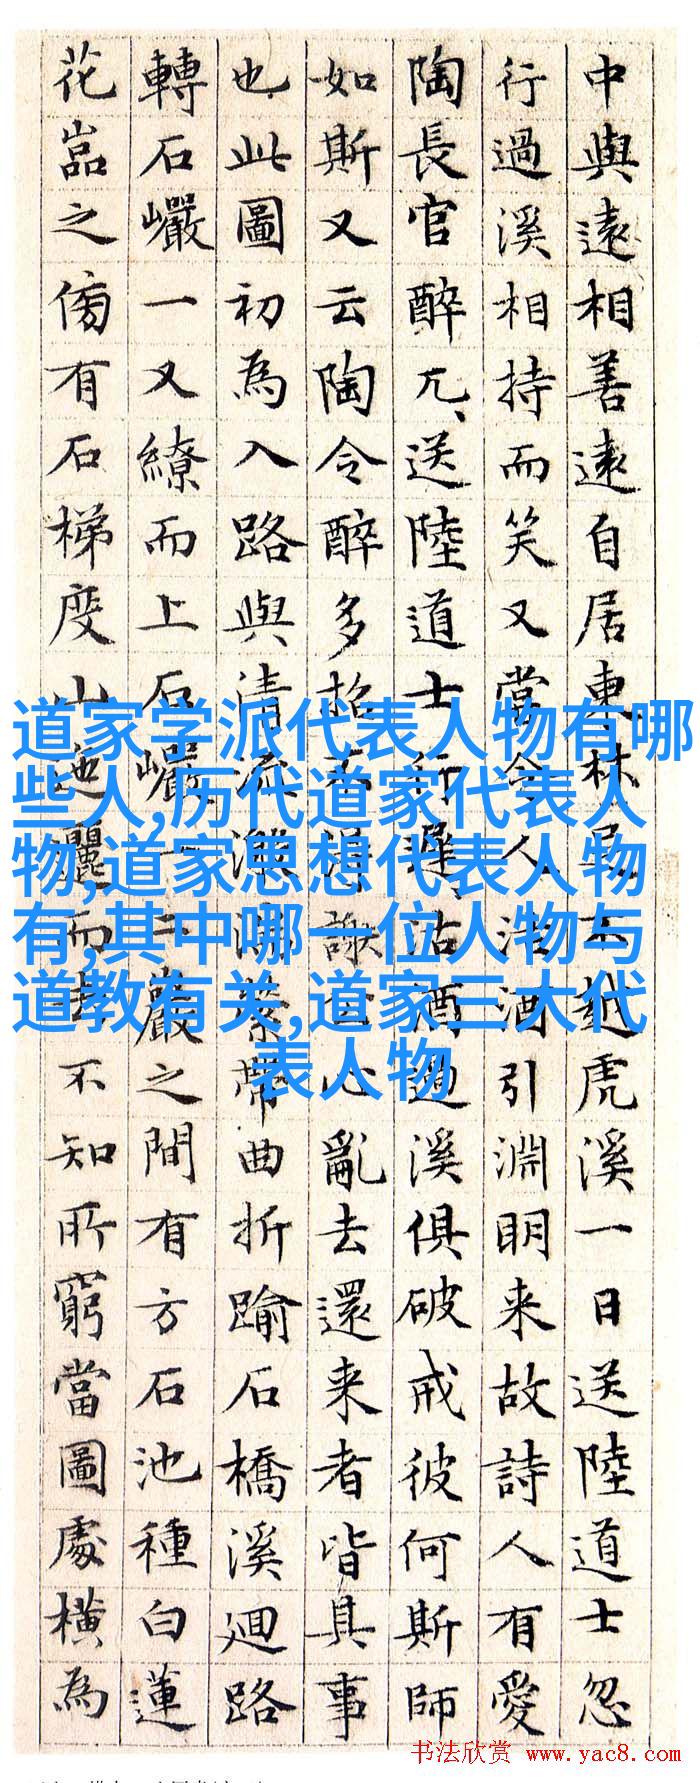 中與遠相善遠自居東林足不越虎溪一日送陸道士忽
行過溪相持而笑又當令人沽酒引淵明来故詩人有愛
陶長官醉兀、送陸道士行遲、沽酒過溪俱破戒彼何斯師
如斯又云陶令醉多招謝心亂去還来者皆具事
也此圖初為入路與清流激沸縈帶曲折踰石橋溪廻路
轉石巖一又繚而上石巖一二巖之間有方石池種白蓮
花嵓之傍有石梯度山而去不知所窮當圖處橫為
道家学派代表人物有哪
些人,历代道家代表人
物,道家思想代表人物
有,其中哪一位人物与
道教有关,道家三大代
表人物
书法欣赏 www.yac8.com